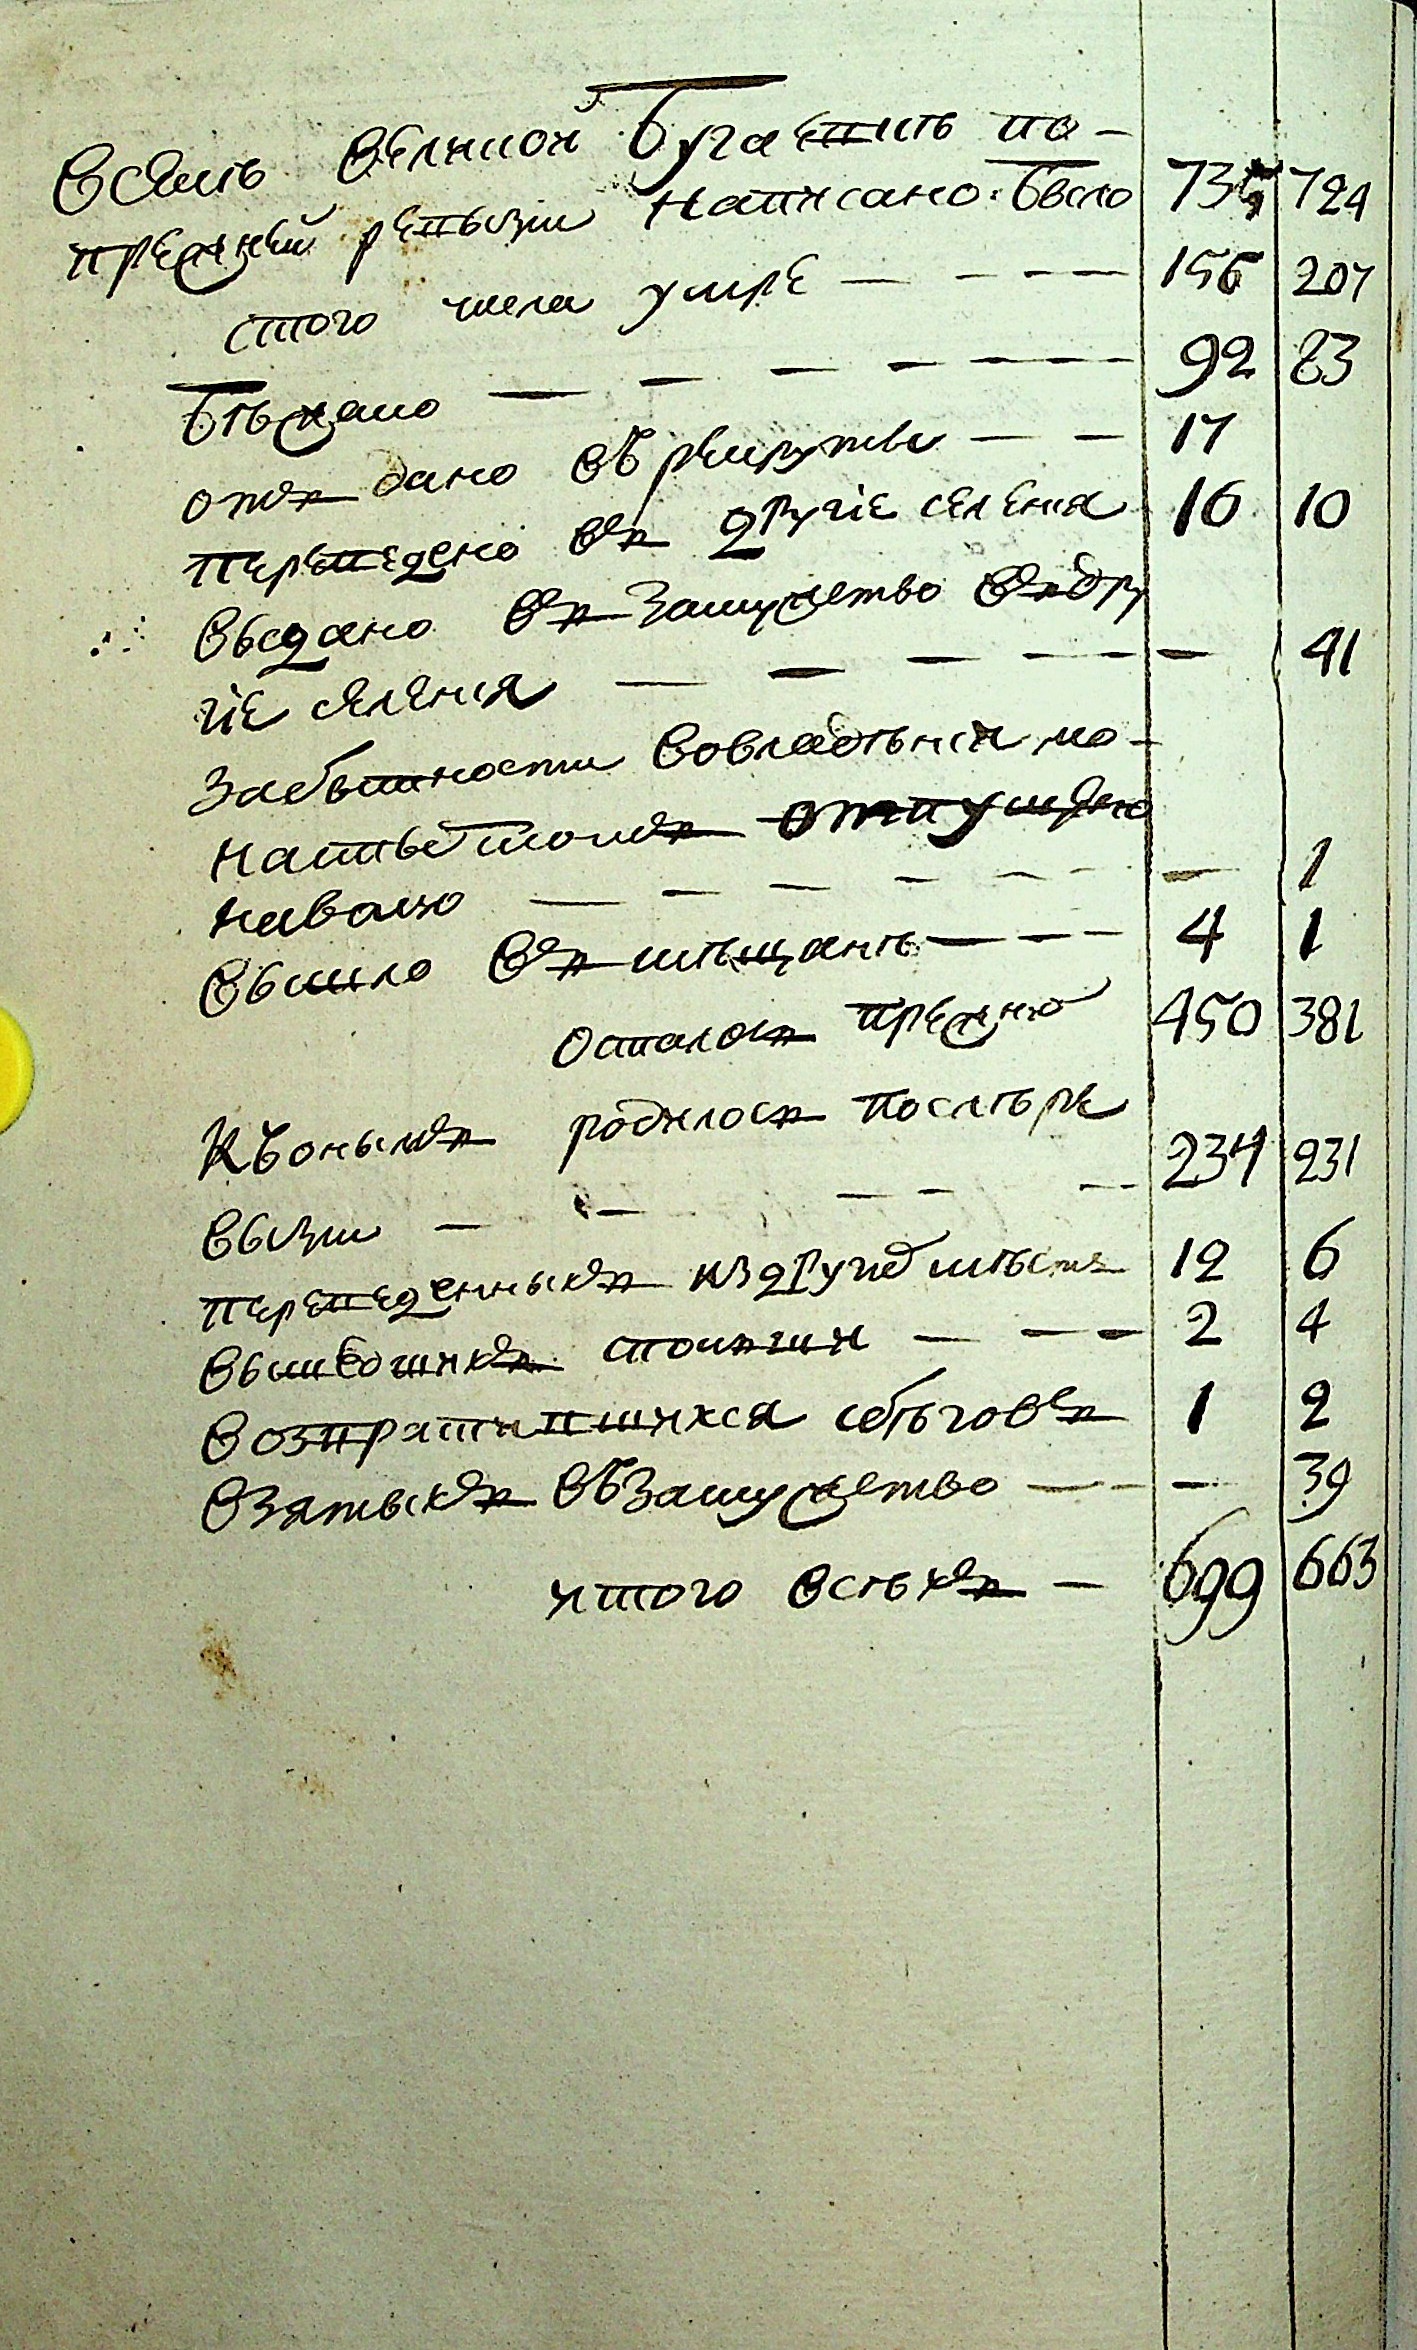 Всемъ Великой Бугаевкѣ по-
прежней ревизіи написано было 735 724
стого числа умре — — — — 156 207
бѣжало — — — — — — 92 83
отъдано въ рекруты — — 17
переведено въ другіе селенія 16 10
выдано въ замужство въ дру
гіе селенія — — — — — — 41
Забытности вовладѣніи мо-
настырскомъ отпущено
на волю — — — — — — 1
вышло въ мѣщане — — — 4 1
осталось прежню 450 381
Къ онымъ родилось послѣ ре
визіи — — — — — 234 231
переведенныхъ из других мѣстъ 12 6
вышедшихъ — — — 2 4
возвратившихся с бѣговъ 1 2
взятыхъ въ замужство — — 39
итого всѣхъ — 699 663